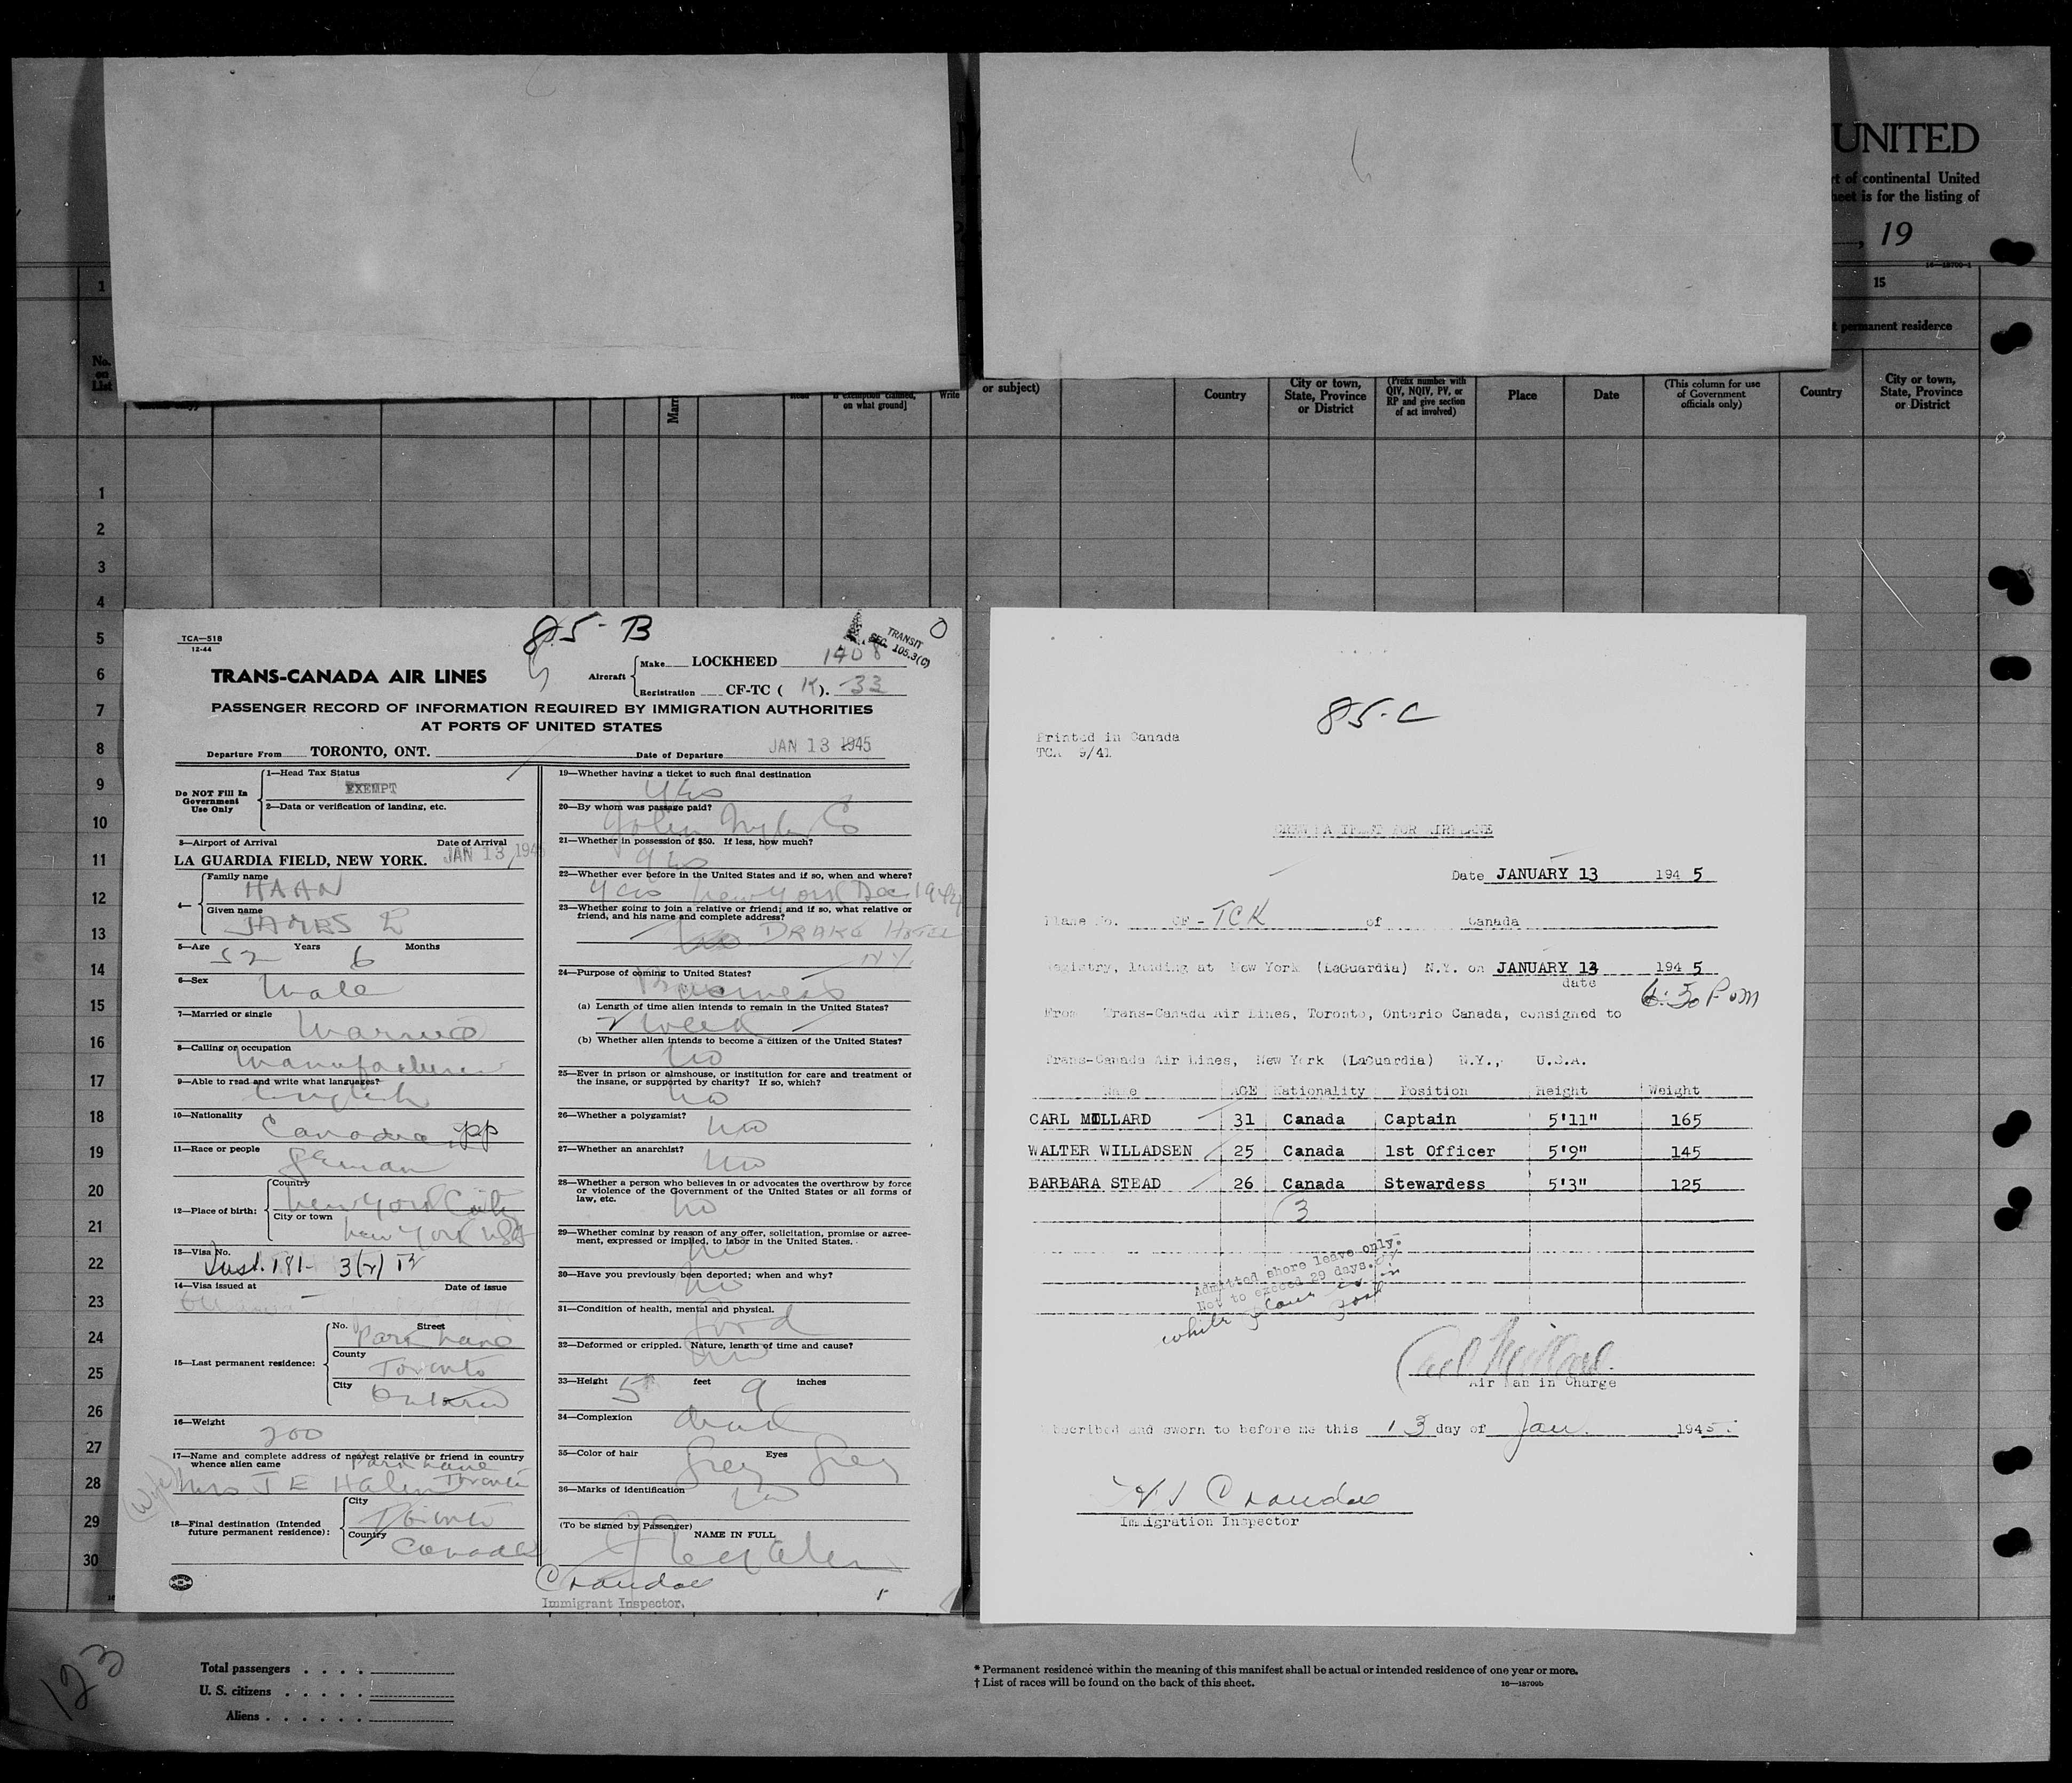 UNITED
rt of continental United
heet is for the listing of
, 19
16—18700-1
1
15
t permanent residence
No.
on
List
on what ground]
Write
or subject)
Country
City or town,
State, Province
or District
(Prefix number with
QIV, NQIV, PV, or
RP and give section
of act involved)
Place
Date
(This column for use
of Government
officials only)
Country
City or town,
State, Province
or District
1
2
3
4
5
6
7
8
9
10
11
12
13
14
15
16
17
18
19
20
21
22
23
24
25
26
27
28
29
30
85-B
TCA—518
12-44
TRANSIT
SEC. 105.3(c)
TRANS-CANADA AIR LINES
Aircraft
Make LOCKHEED 1408
Registration CF-TC ( K ). 33
PASSENGER RECORD OF INFORMATION REQUIRED BY IMMIGRATION AUTHORITIES
AT PORTS OF UNITED STATES
Departure From TORONTO, ONT. Date of Departure JAN 13 1945
Do NOT Fill In
Government
Use Only
1—Head Tax Status
EXEMPT
2—Data or verification of landing, etc.
3—Airport of Arrival Date of Arrival
LA GUARDIA FIELD, NEW YORK. JAN 13, 194
4—
Family name
HAHN
Given name
JAMES E
5—Age Years Months
52 6
6—Sex
Male
7—Married or single
Married
8—Calling or occupation
Manufacturer
9—Able to read and write what languages?
English
10—Nationality
Canadian PP
11—Race or people
German
12—Place of birth:
Country
New York City
City or town
New York USA
13—Visa No.
Inst. 181- 3(2) TR
14—Visa issued at Date of issue
15—Last permanent residence:
No. Street
Park Lane
County
Toronto
City
Ontario
16—Weight
200
17—Name and complete address of nearest relative or friend in country
whence alien came
Park Lane
(Wife) Mrs J E Hahn Toronto
18—Final destination (Intended
future permanent residence):
City
Toronto
Country
Canada
19—Whether having a ticket to such final destination
Yes
20—By whom was passage paid?
John Inglis Co
21—Whether in possession of $50. If less, how much?
Yes
22—Whether ever before in the United States and if so, when and where?
Yes New York Dec 1944
23—Whether going to join a relative or friend; and if so, what relative or
friend, and his name and complete address?
No DRAKE HOTEL
N Y.
24—Purpose of coming to United States?
Business
(a) Length of time alien intends to remain in the United States?
Week
(b) Whether alien intends to become a citizen of the United States?
No
25—Ever in prison or almshouse, or institution for care and treatment of
the insane, or supported by charity? If so, which?
No
26—Whether a polygamist?
No
27—Whether an anarchist?
No
28—Whether a person who believes in or advocates the overthrow by force
or violence of the Government of the United States or all forms of
law, etc.
No
29—Whether coming by reason of any offer, solicitation, promise or agree-
ment, expressed or implied, to labor in the United States.
No
30—Have you previously been deported; when and why?
No
31—Condition of health, mental and physical.
Good
32—Deformed or crippled. Nature, length of time and cause?
No
33—Height 5 feet 9 inches
34—Complexion
35—Color of hair Eyes
Grey Grey
36—Marks of identification
No
(To be signed by Passenger)
NAME IN FULL
Immigrant Inspector.
85-C
Printed in Canada
TCA 9/41
Date JANUARY 13 194 5
Plane No. CF-TCK of Canada
Registry, landing at New York (LaGuardia) N.Y. on JANUARY 13 194 5
date
6:30 P.M
From Trans-Canada Air Lines, Toronto, Ontario Canada, consigned to
Trans-Canada Air Lines, New York (LaGuardia) N.Y., U.S.A.
Name AGE Nationality Position Height Weight
CARL MILLARD 31 Canada Captain 5'11" 165
WALTER WILLADSEN 25 Canada 1st Officer 5'9" 145
BARBARA STEAD 26 Canada Stewardess 5'3" 125
3
Admitted shore leave only.
Not to exceed 29 days.
while plane is in
port
Carl Millard
Air Man in Charge
scribed and sworn to before me this 13 day of Jan. 1945
Immigration Inspector
123
Total passengers
U. S. citizens
Aliens
* Permanent residence within the meaning of this manifest shall be actual or intended residence of one year or more.
† List of races will be found on the back of this sheet.
16—18700b